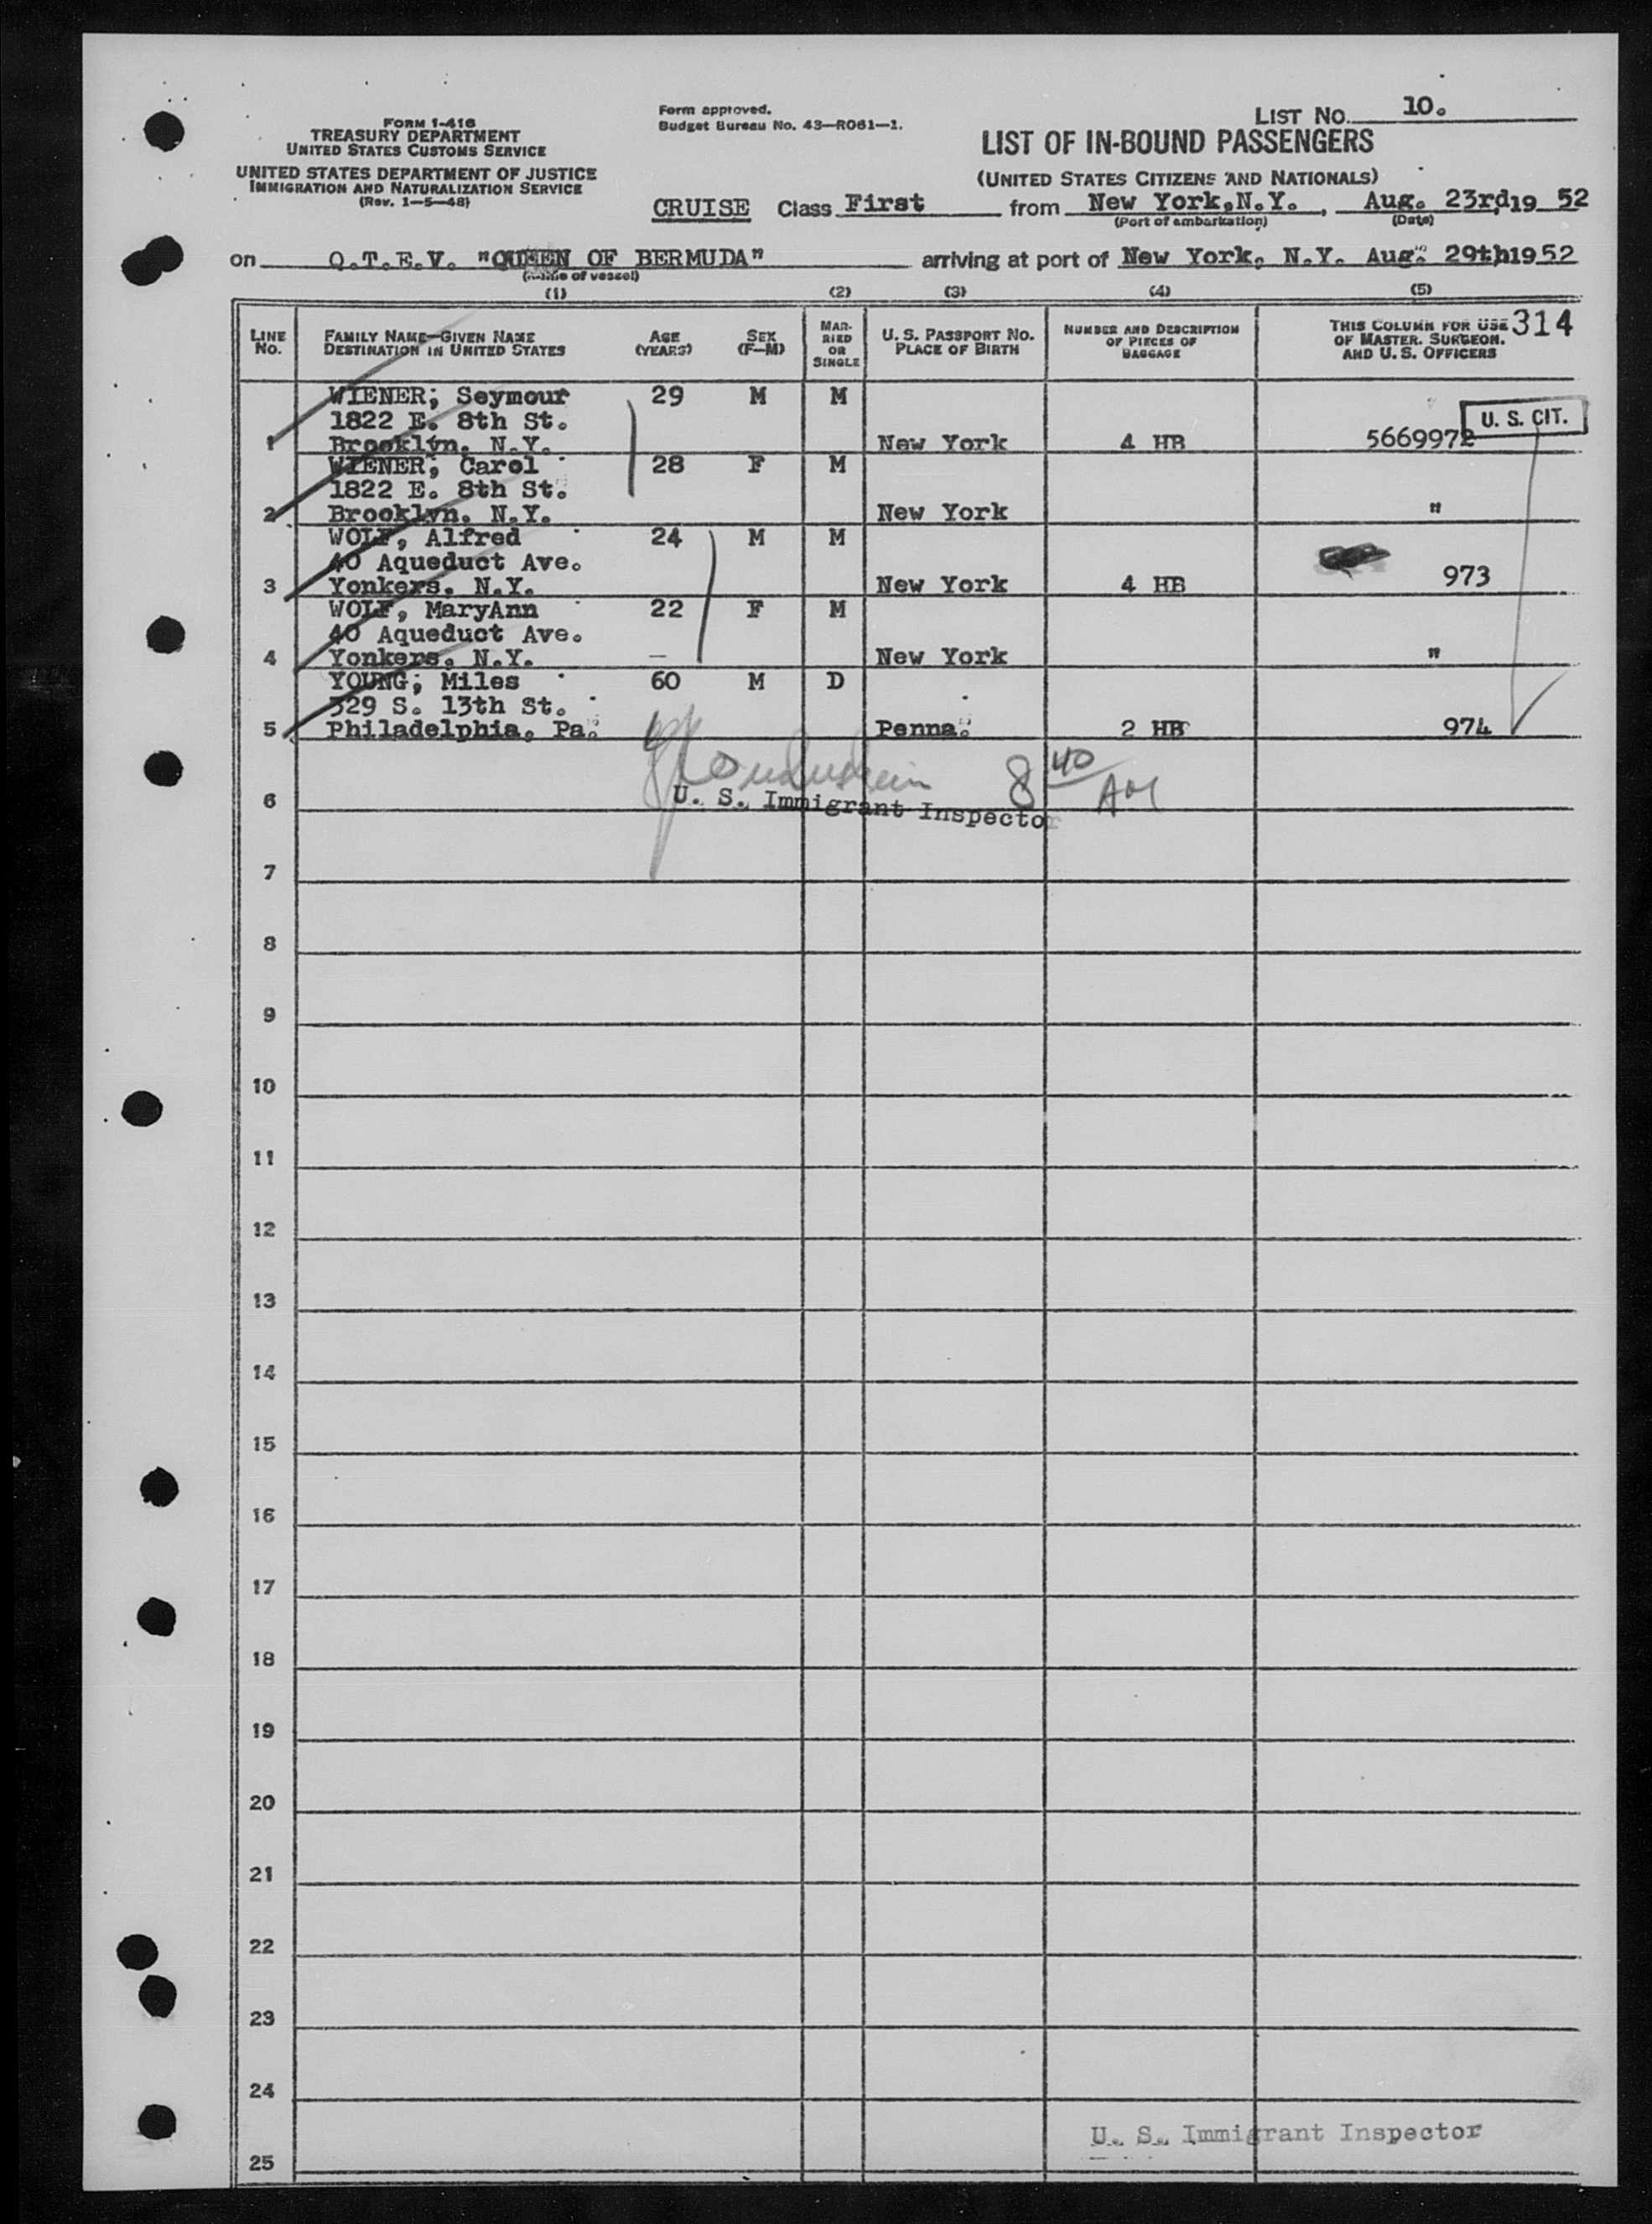 LIST No. 10.
FORM I-416
TREASURY DEPARTMENT
UNITED STATES CUSTOMS SERVICE
UNITED STATES DEPARTMENT OF JUSTICE
IMMIGRATION AND NATURALIZATION SERVICE
(Rev. 1-5-48)
Form approved.
Budget Bureau No. 43-R061-1.
LIST OF IN-BOUND PASSENGERS
(UNITED STATES CITIZENS AND NATIONALS)
CRUISE Class First from New York, N.Y., Aug. 23rd, 19 52
(Port of embarkation) (Date)
on Q.T.E.V. "QUEEN OF BERMUDA" arriving at port of New York, N.Y. Aug. 29th 1952
(Name of vessel)
(1) (2) (3) (4) (5)
LINE No. FAMILY NAME—GIVEN NAME DESTINATION IN UNITED STATES AGE (YEARS) SEX (F—M) MARRIED OR SINGLE U. S. PASSPORT NO. PLACE OF BIRTH NUMBER AND DESCRIPTION OF PIECES OF BAGGAGE THIS COLUMN FOR USE OF MASTER, SURGEON, AND U. S. OFFICERS 314
WIENER; Seymour 29 M M
1822 E. 8th St. U. S. CIT.
1 Brooklyn, N.Y. New York 4 HB 5669972
WIENER; Carol 28 F M
1822 E. 8th St.
2 Brooklyn, N.Y. New York "
WOLF, Alfred 24 M M
40 Aqueduct Ave.
3 Yonkers, N.Y. New York 4 HB 973
WOLF, MaryAnn 22 F M
40 Aqueduct Ave.
4 Yonkers, N.Y. New York "
YOUNG; Miles 60 M D
329 S. 13th St.
5 Philadelphia, Pa. Penna. 2 HB 974
8 40 AM
6 U. S. Immigrant Inspector
7
8
9
10
11
12
13
14
15
16
17
18
19
20
21
22
23
24
U. S. Immigrant Inspector
25